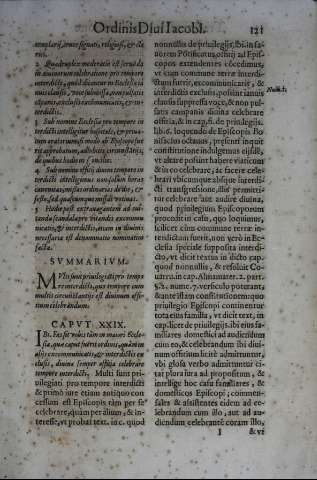 Ordinis Diui Iacobi. 121
templarij, cruce signati, religiosi, & clerici.
2 Quadruplex moderatio est seruanda in diuinorum celebratione pro tempore interdicti, quod dicantur in Ecclesia ianuis clausis, voce submissa, non pulsatis campanis, exclusis excommunicatis, & interdictis.
3 Sub nomine Ecclesiæ pro tempore interdicti intelligitur hospitale, & priuatum oratorium,
de quibus hodie
4 Sub nomine officij diuini tempore interdicti intelliguntur non solum horæ canonicæ, missæ ordinariæ de die, & festo, sed quæcunque missæ votiuæ.
5 Hodie post extrauagantem ad euitanda scandala pro vitandis excommunicatis, & interdictis, etiam in diuinis necessaria est denuntiatio nominatim facta.
SVMMARIVM.
MVlti sunt priuilegiati pro tempore interdicti, quo tempore cum multis circunstantijs est diuinum officium celebrandum.
CAPVT XXIX.
IBi. Eas
sia, que caput fuerit ordinis, quàm in alijs excommunicatis, & interdictis exclusis, diuina semper officia celebrare tempore interdicti. Multi sunt priuilegiati pro tempore interdicti & primò iure etiam antiquo concessum est Episcopis tàm per se celebrare, quàm per alium, & interesse, vt probat text. in c. quod
nonnullis de priuilegijs, ibi. in fauorem Põtificatus, officij ad Episcopos extendentes côcedimus, vt cùm commune terræ interdictum fuerit, excommunicatis, & interdictis exclusis, possint ianuis clausis suppressa voce, & non pulsatis campanis diuina celebrare officia, & in cap. fi. de priuilegijs. lib. 6. loquendo de Episcopis Bonifacius octauus, præsenti inquit constitutione indulgemus eisdem, vt altare possint habere viaticum & in eo celebrare, ac facere celebrari vbicumque absque interdicti transgressione, illis permittitur celebrare aut audire diuina,
quod priuilegium Episcoporum procedit in casu, quo loquimur, scilicet cùm commune terræ interdictum fuerit, non verò in Ecclesia speciale supposita interdicto, vt dicit textus in dicto cap. quod nonnullis, & resoluit Couarru. in cap. Almamater. 2. part. §. 2. num. 7. versiculo poterunt, & ante istam constitutionem quo priuilegio Episcopi continentur tota eius familia, vt dicit text. in cap. licet de priuilegijs. ibi eius familiares domestici ad audiendum cùm eo, & celebrandum ibi diuinum officium licitè admittuntur, vbi glosa verbo admittuntur citat plura iura ad propositum, & intellige hoc casu familiares, & domesticos Episcopi, commensales & assistentes eidem ad celebrandum cum illo, aut ad audiendum celebrantê coram illo,
I & vt